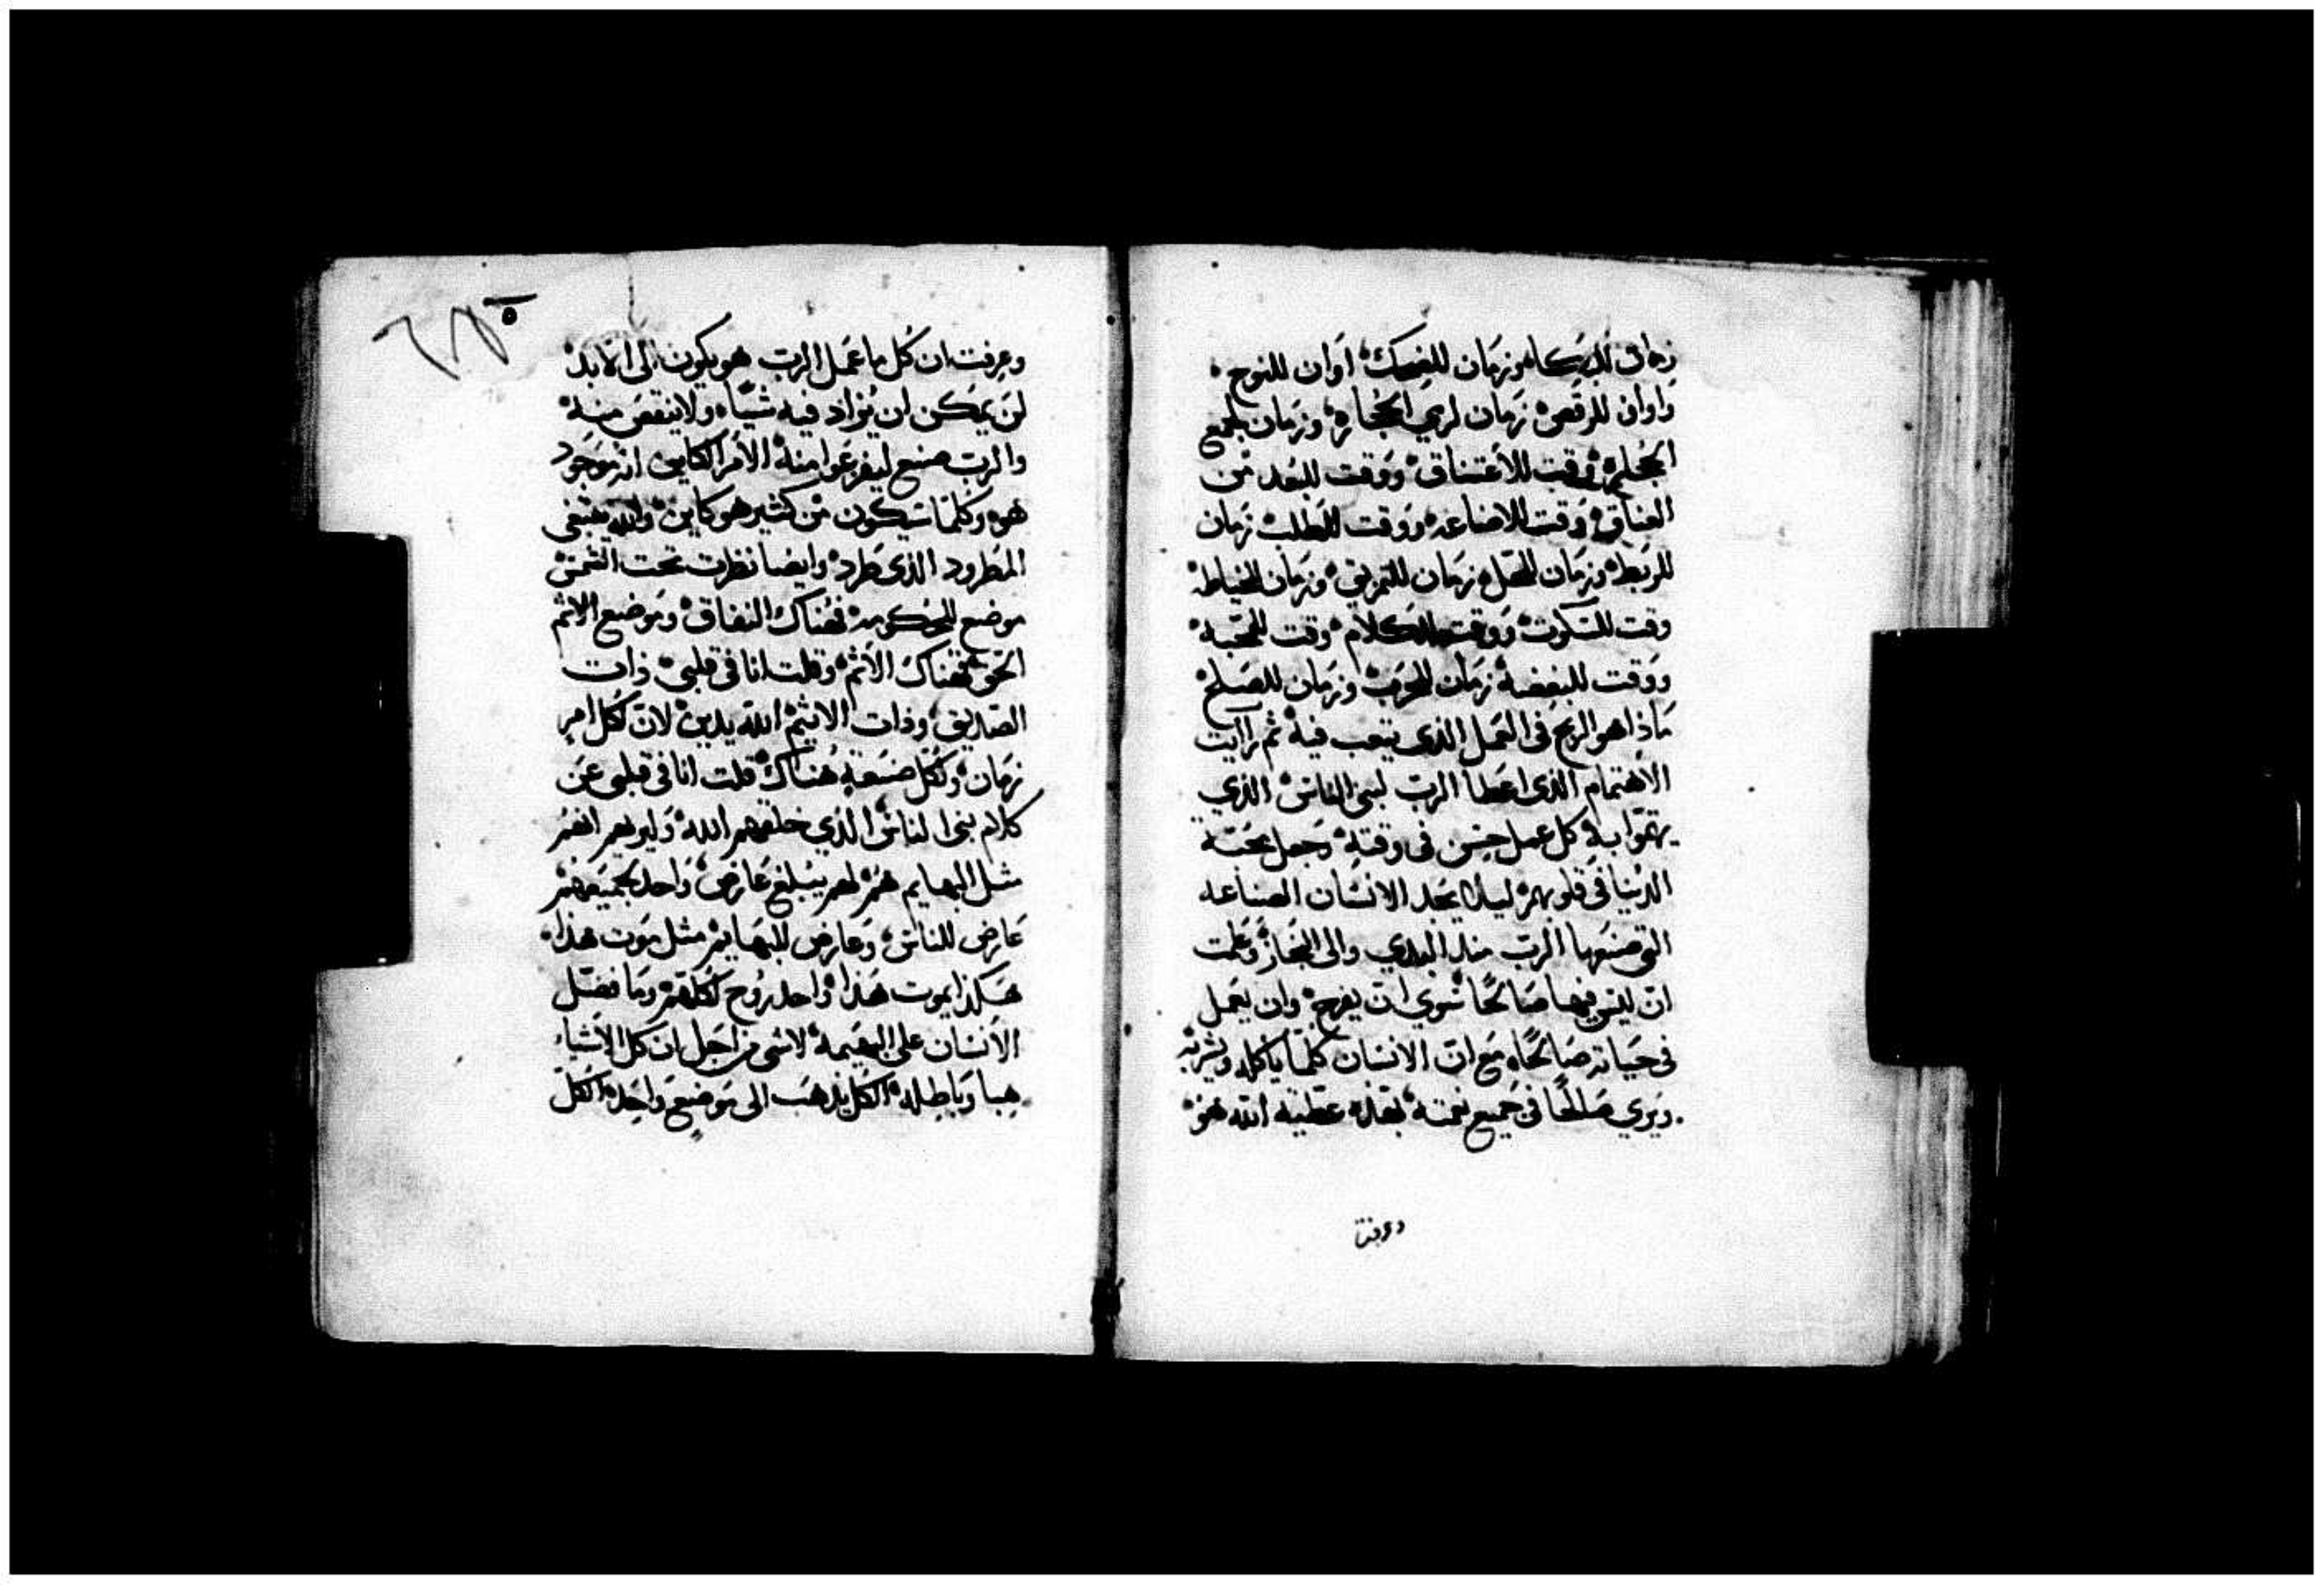 زمان للبكاء وزمان للضحك اوان للنوح
واوان للرقص زمان لرمي الحجارة وزمان لجمع
الحجارة وقت للاعتناق ووقت للبعد من
العناق وقت للاضاعه ووقت للطلب زمان
للربط وزمان للحل زمان للتمزيق وزمان للخياطه
وقت للسكوت ووقت للكلام وقت للمحبه
ووقت للبغضه زمان للحرب وزمان للصلح
ماذا هو الربح في العمل الذي يتعب فيه ثم رايت
الاهتمام الذي اعطا الرب لبني الناس الذي
يهتموا به كل عمل حسن في وقته وجعل محبة
الدنيا في قلوبهم ليلا يجد الانسان الصناعه
التي صنعها الرب منذ البدي والى النجاز وعلمت
ان ليس فيها صالحًا سوي ان يفرح وان يعمل
في حياته صالحًا مع ان الانسان كلما ياكله ويشربه
ويري صالحًا في جميع نعمته بعد عطيه الله هو
وعرفت
٢٨٥
وعرفت ان كل ما عمل الرب هو يكون الى الابد
لن يمكن ان يزاد فيه شيًا ولا ينقص منه
والرب صنع ليفزعوا منه الامر الكاين انه موجود
هو وكلما سيكون من كثير هو كاين والله يبتغى
المطرود الذي طرد وايضا نظرت تحت الشمس
موضع للحكومه فهناك النفاق وموضع الاثم
الحق فهناك الاثم وقلت انا في قلبي ذات
الصديق وذات الاثيم الله يدين لان لكل امر
زمان ولكل صنعة هناك قلت انا في قلبي عن
كلام بني الناس الذي خلقهم الله وليريهم انهم
مثل البهايم هم لهم يبلغ عارض واحد لجميعهم
عارض للناس وعارض للبهايم مثل موت هذا
هكذا يموت هذا واحد روح لكلهم وما فضل
الانسان على البهيمه لاشى من اجل ان كل الاشياء
هبا وباطله الكل يذهب الى موضع واحد الكل